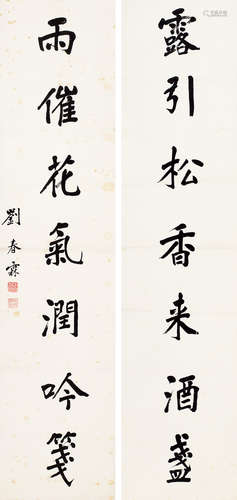 露引松香来酒盏
雨催花氣潤吟箋
劉春霖